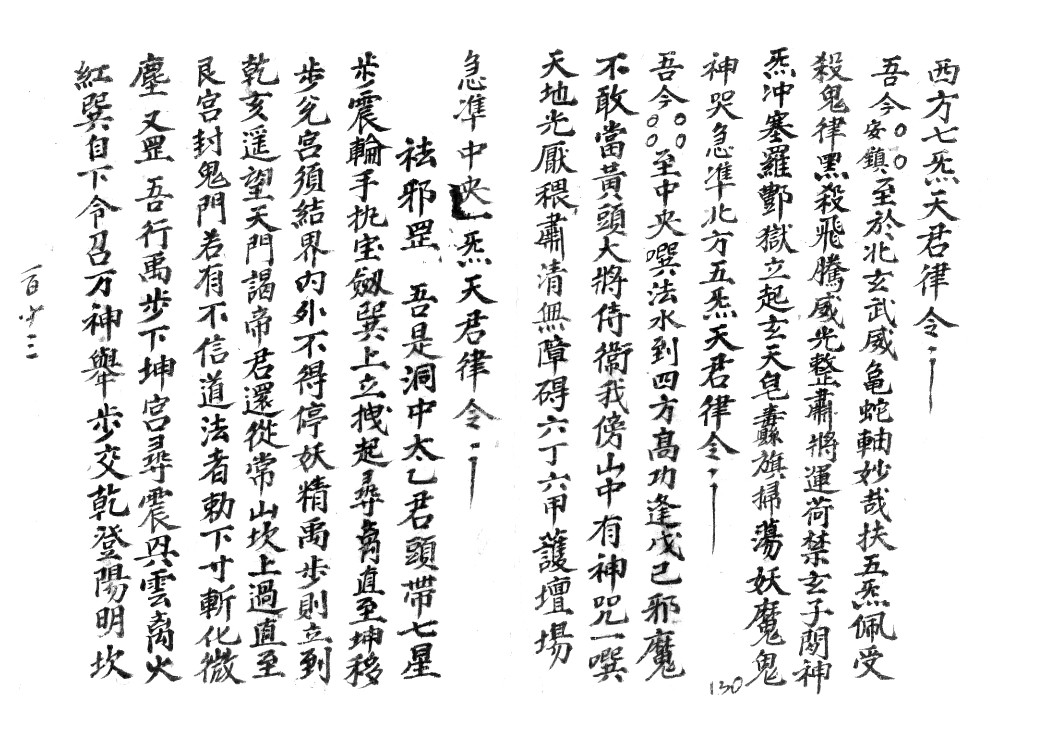 西方七炁天君律令
吾今安鎮○○至於北玄武威龜蛇軸妙哉扶五炁佩受
殺鬼律黑殺飛騰威光整肅將運荷禁玄子閗神
炁冲塞羅酆獄立起玄天皂纛旗掃蕩妖魔鬼
神哭急準北方五炁天君律令
吾今○○○○至中央噀法水到四方高功逢戊己邪魔
不敢當黃頭大將侍衞我傍山中有神咒一噀
天地光厭穢肅清無障碍六丁六甲護壇場
急準中央一炁天君律令
祛邪罡 吾是洞中太乙君頭帶七星
步震輪手执宝劔巽上立拽起尋离直至坤移
步兊宮須結界內外不得停妖精禹步則立到
乾亥遥望天門謁帝君還從常山坎上過直至
艮宮封鬼門若有不信道法者勅下寸斬化微
塵 又罡 吾行禹步下坤宮尋震興雲离火
紅巽自下令召万神舉步交乾登陽明坎
百廿三
130